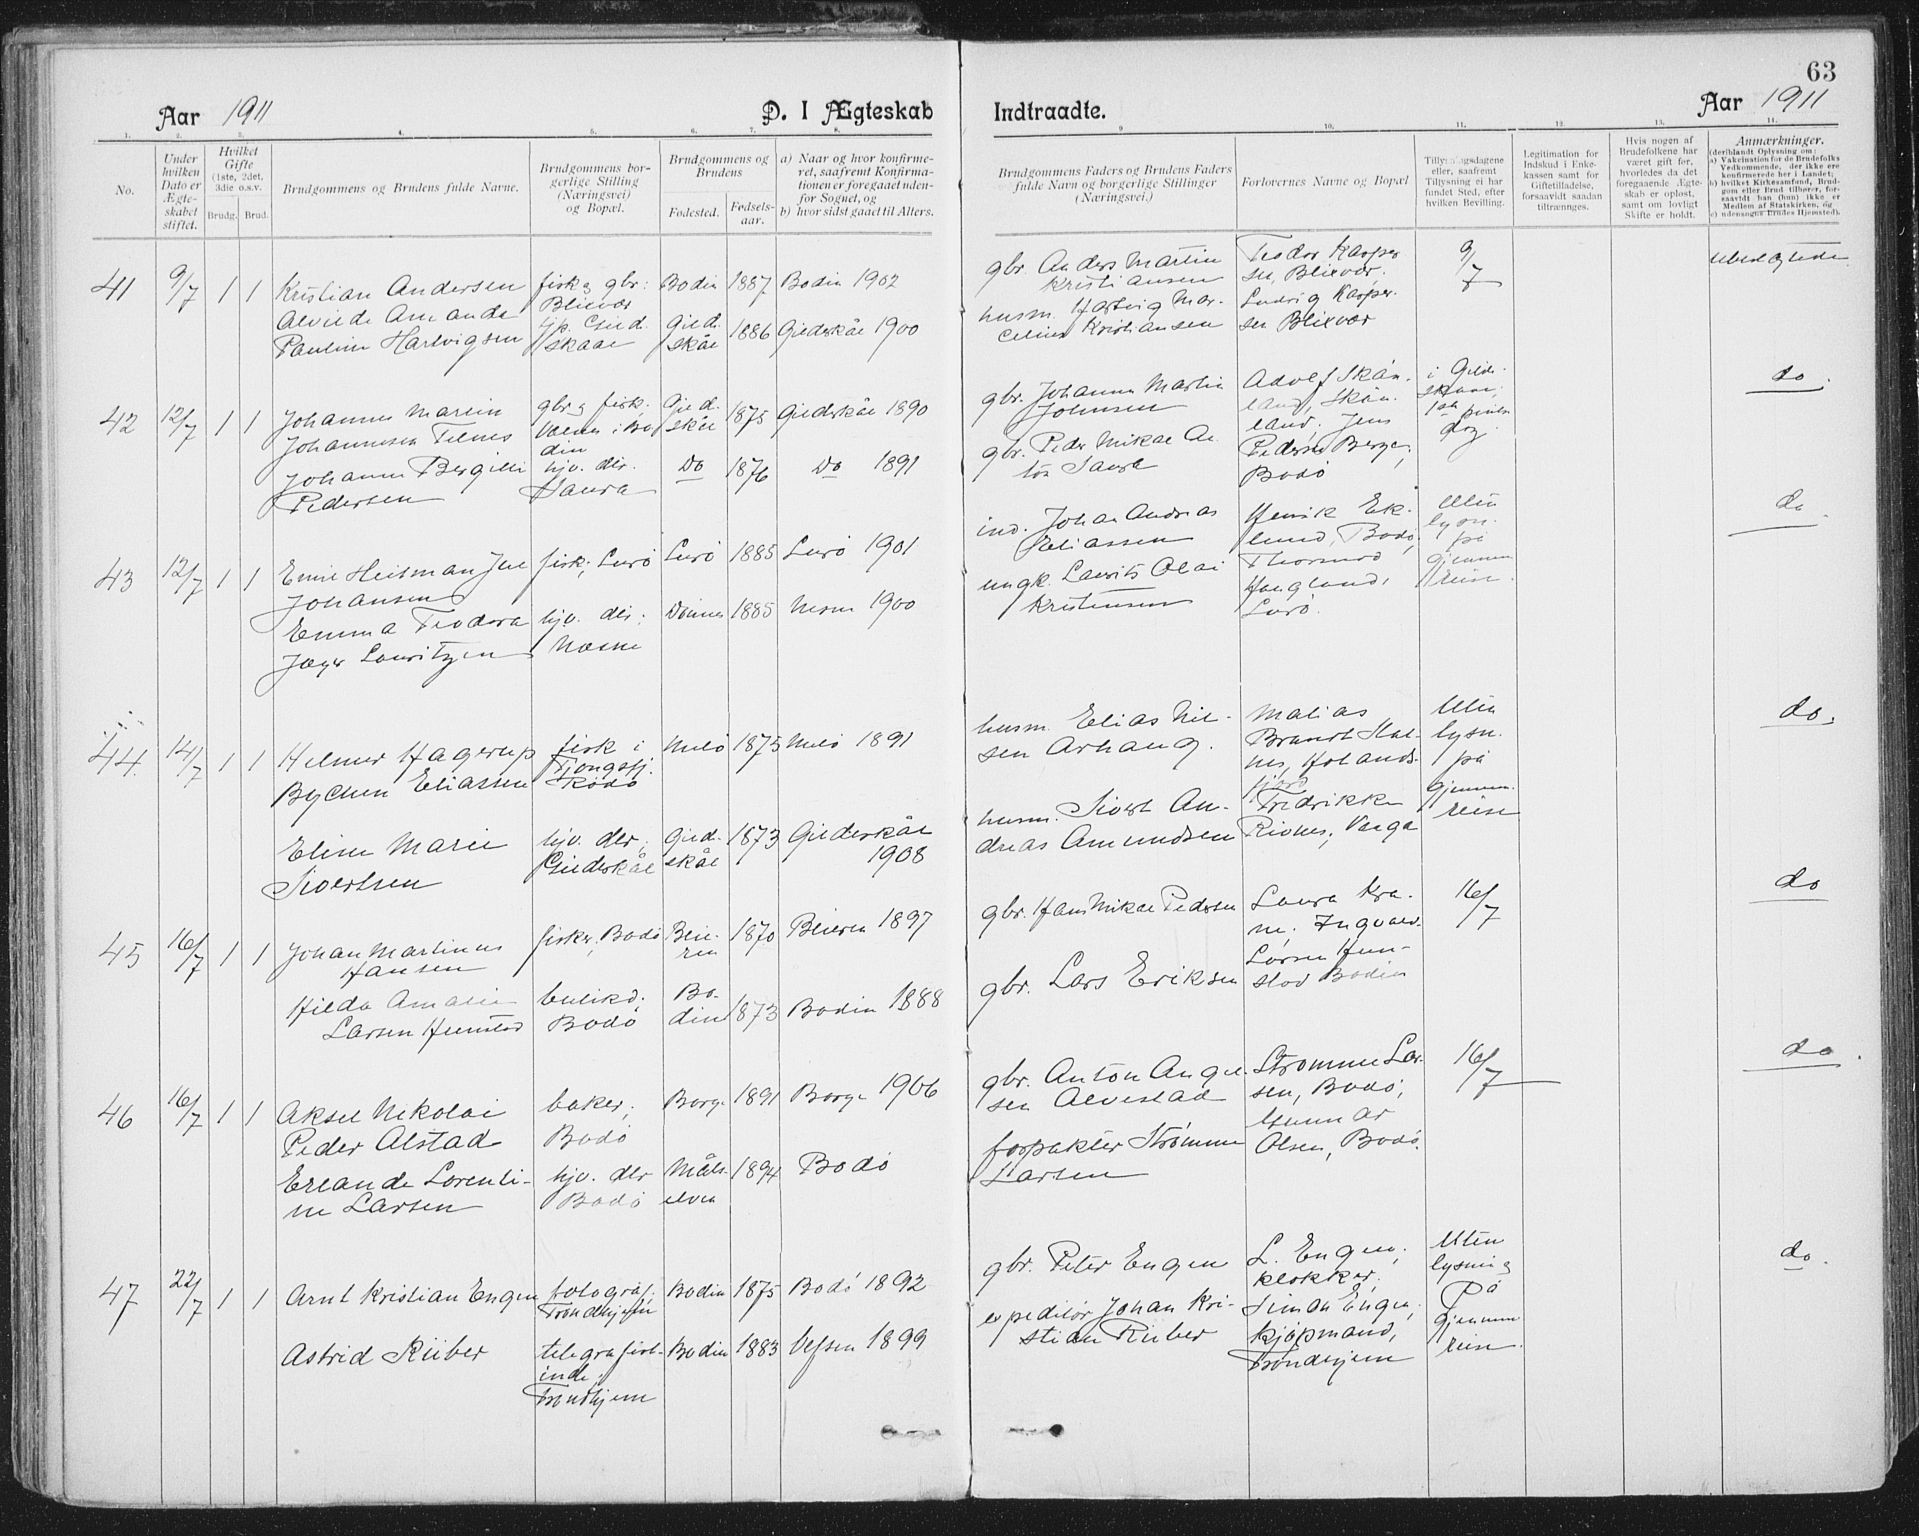 63
Aar 1911
D. I Ægteskab
Indtraadte.
Aar 1911
1. 2. 3. 4. 5. 6. 7. 8. 9 10. 11. 12. 13. 14.
No.
Under
hvilken
Dato er
Ægte-
skabet
stiftet.
Hvilket
Gifte
(1ste, 2det,
3die o.s.v.
Brudg. Brud.
Brudgommens og Brudens fulde Navne.
Brudgommens bor-
gerlige Stilling
(Næringsvei)
og Bopæl.
Brudgommens og
Brudens
Fødested.
Fødsels-
aar.
a) Naar og hvor konfirme-
ret, saafremt Konfirma-
tionen er foregaaet uden-
for Sognet, og
b) hvor sidst gaaet til Alters.
Brudgommens Faders og Brudens Faders
fulde Navn og borgerlige Stillinger
(Næringsvei.)
Forlovernes Navne og Bopæl
Tillysningsdagene
eller, saafremt
Tillysning ei har
fundet Sted, efter
hvilken Bevilling.
Legitimation for
Indskud i Enke-
kassen samt for
Giftetilladelse,
forsaavidt saadan
tiltrænges.
Hvis nogen af
Brudefolkene har
været gift før,
hvorledes da det
foregaaende Ægte-
skab er opløst,
samt om lovligt
Skifte er holdt.
Anmærkninger.
(deriblandt Oplysning om:
a) Vakcination for de Brudefolks
Vedkommende, der ikke ere
konfirmerede her i Landet;
b) hvilket Kirkesamfund, Brud-
gom eller Brud tilhører, for-
saavidt han (hun) ikke er
Medlem af Statskirken, og
c) udensogns Brudes Hjemsted).
41 9/7 1 1
Kristian Andersen
Alvilde Amanda
Pauline Hartvigsen
fisk. g gbr:
Blixvær
Gild-
skaal
Bodin 1887 Bodin 1902
Gild-
skål 1886 Gildeskål 1900
gbr. Anders Martin
Kristiansen
husm. Hartvig Mar-
celius Kristiansen
Teodor Kasper
sen, Blixvær.
Ludvig Kasper-
sen Blixvær
9/7
42 12/7 1 1
Johannes Martin
Johannesen Felnes
Johanna Bergitte
Pedersen
gbr. g fisk.
i Bo
din
hjv. dtr.
Saura
Gild-
skål 1875 Gildeskål 1890
Do 1876 Do 1891
gbr. Johannes Martin
Johnsen
gbr. Peder Mikal
Saura
Adolf Skån-
land, Skån-
land. Jens
Pedersen Berge,
Bodö
i Gilde-
skaal,
1ste pinse-
dag
do.
43 12/7 1 1
Emil Heitman
Johansen
Emma Teodora
Jæger Lauritzen
fisk; Lurö
hjv. dtr;
Næsne
Lurö 1885 Lurö 1901
Dønnes 1885 Nesne 1900
ind. Johan Andreas
Eliassen
ungk. Laurits Olai
Kristensen
Henrik Ek-
lund, Bodö;
Thormod
Haugland,
Lurö.
Uten
lysn.
på
gjennem
reise.
do.
44. 14/7 1 1
Helmer Hagerup
Eliassen
Eline Marie
Sivertsen
fisk i
Tjongsfj.
Rödö
hjv. dtr;
Gildeskål
Melö 1875 Melö 1891
Gild-
skål 1873 Gildeskål
1908
husm. Elias Nil-
sen Arhaug.
husm. Sivert An-
dreas Amundsen
Matias
Brandt
nes, Holands-
fjord
Fredrikke
Rivnes, Varga
Uten
lysn.
på
gjennem.
reise
do.
45 16/7 1 1
Johan Martinus
Hansen
Hilda Amalie
Larsen Hunstad
fisker, Bodö
butikd.
Bodö
Beie-
ren 1870 Beieren 1897
Bo-
din 1873 Bodin 1888
gbr. Hans Mikal Pedersen
gbr. Lars Eriksen
Laura
Ingvald
Larsen Hun-
stad Bodin
16/7
do
46 16/7 1 1
Aksel Nikolai
Peder Alstad
Erlande Lorenti-
ne Larsen
baker;
Bodö
hjv. dtr
Bodö
Borge 1891 Borge 1906
Måls-
elven 1894 Bodö
gbr. Anton Angel-
sen Alvestad
forpakter Strømme
Larsen
Strømme Lar-
sen, Bodö;
Gunnar
Olsen, Bodö.
16/7
do.
47 22/7 1 1
Arnt Kristian Engen
Astrid Rüber
fotograf;
Trondhjem
telegrafist-
inde;
Trondhjem
Bodin 1875 Bodö 1892
Bodin 1883 Vefsen 1899
gbr. Peter Engen
expeditör Johan Kri-
stian Rüber
L. Engen,
klokker;
Simon Engen,
kjøpmand,
Trondhjem
Uten
lysning
På
gjennem
reise.
do.